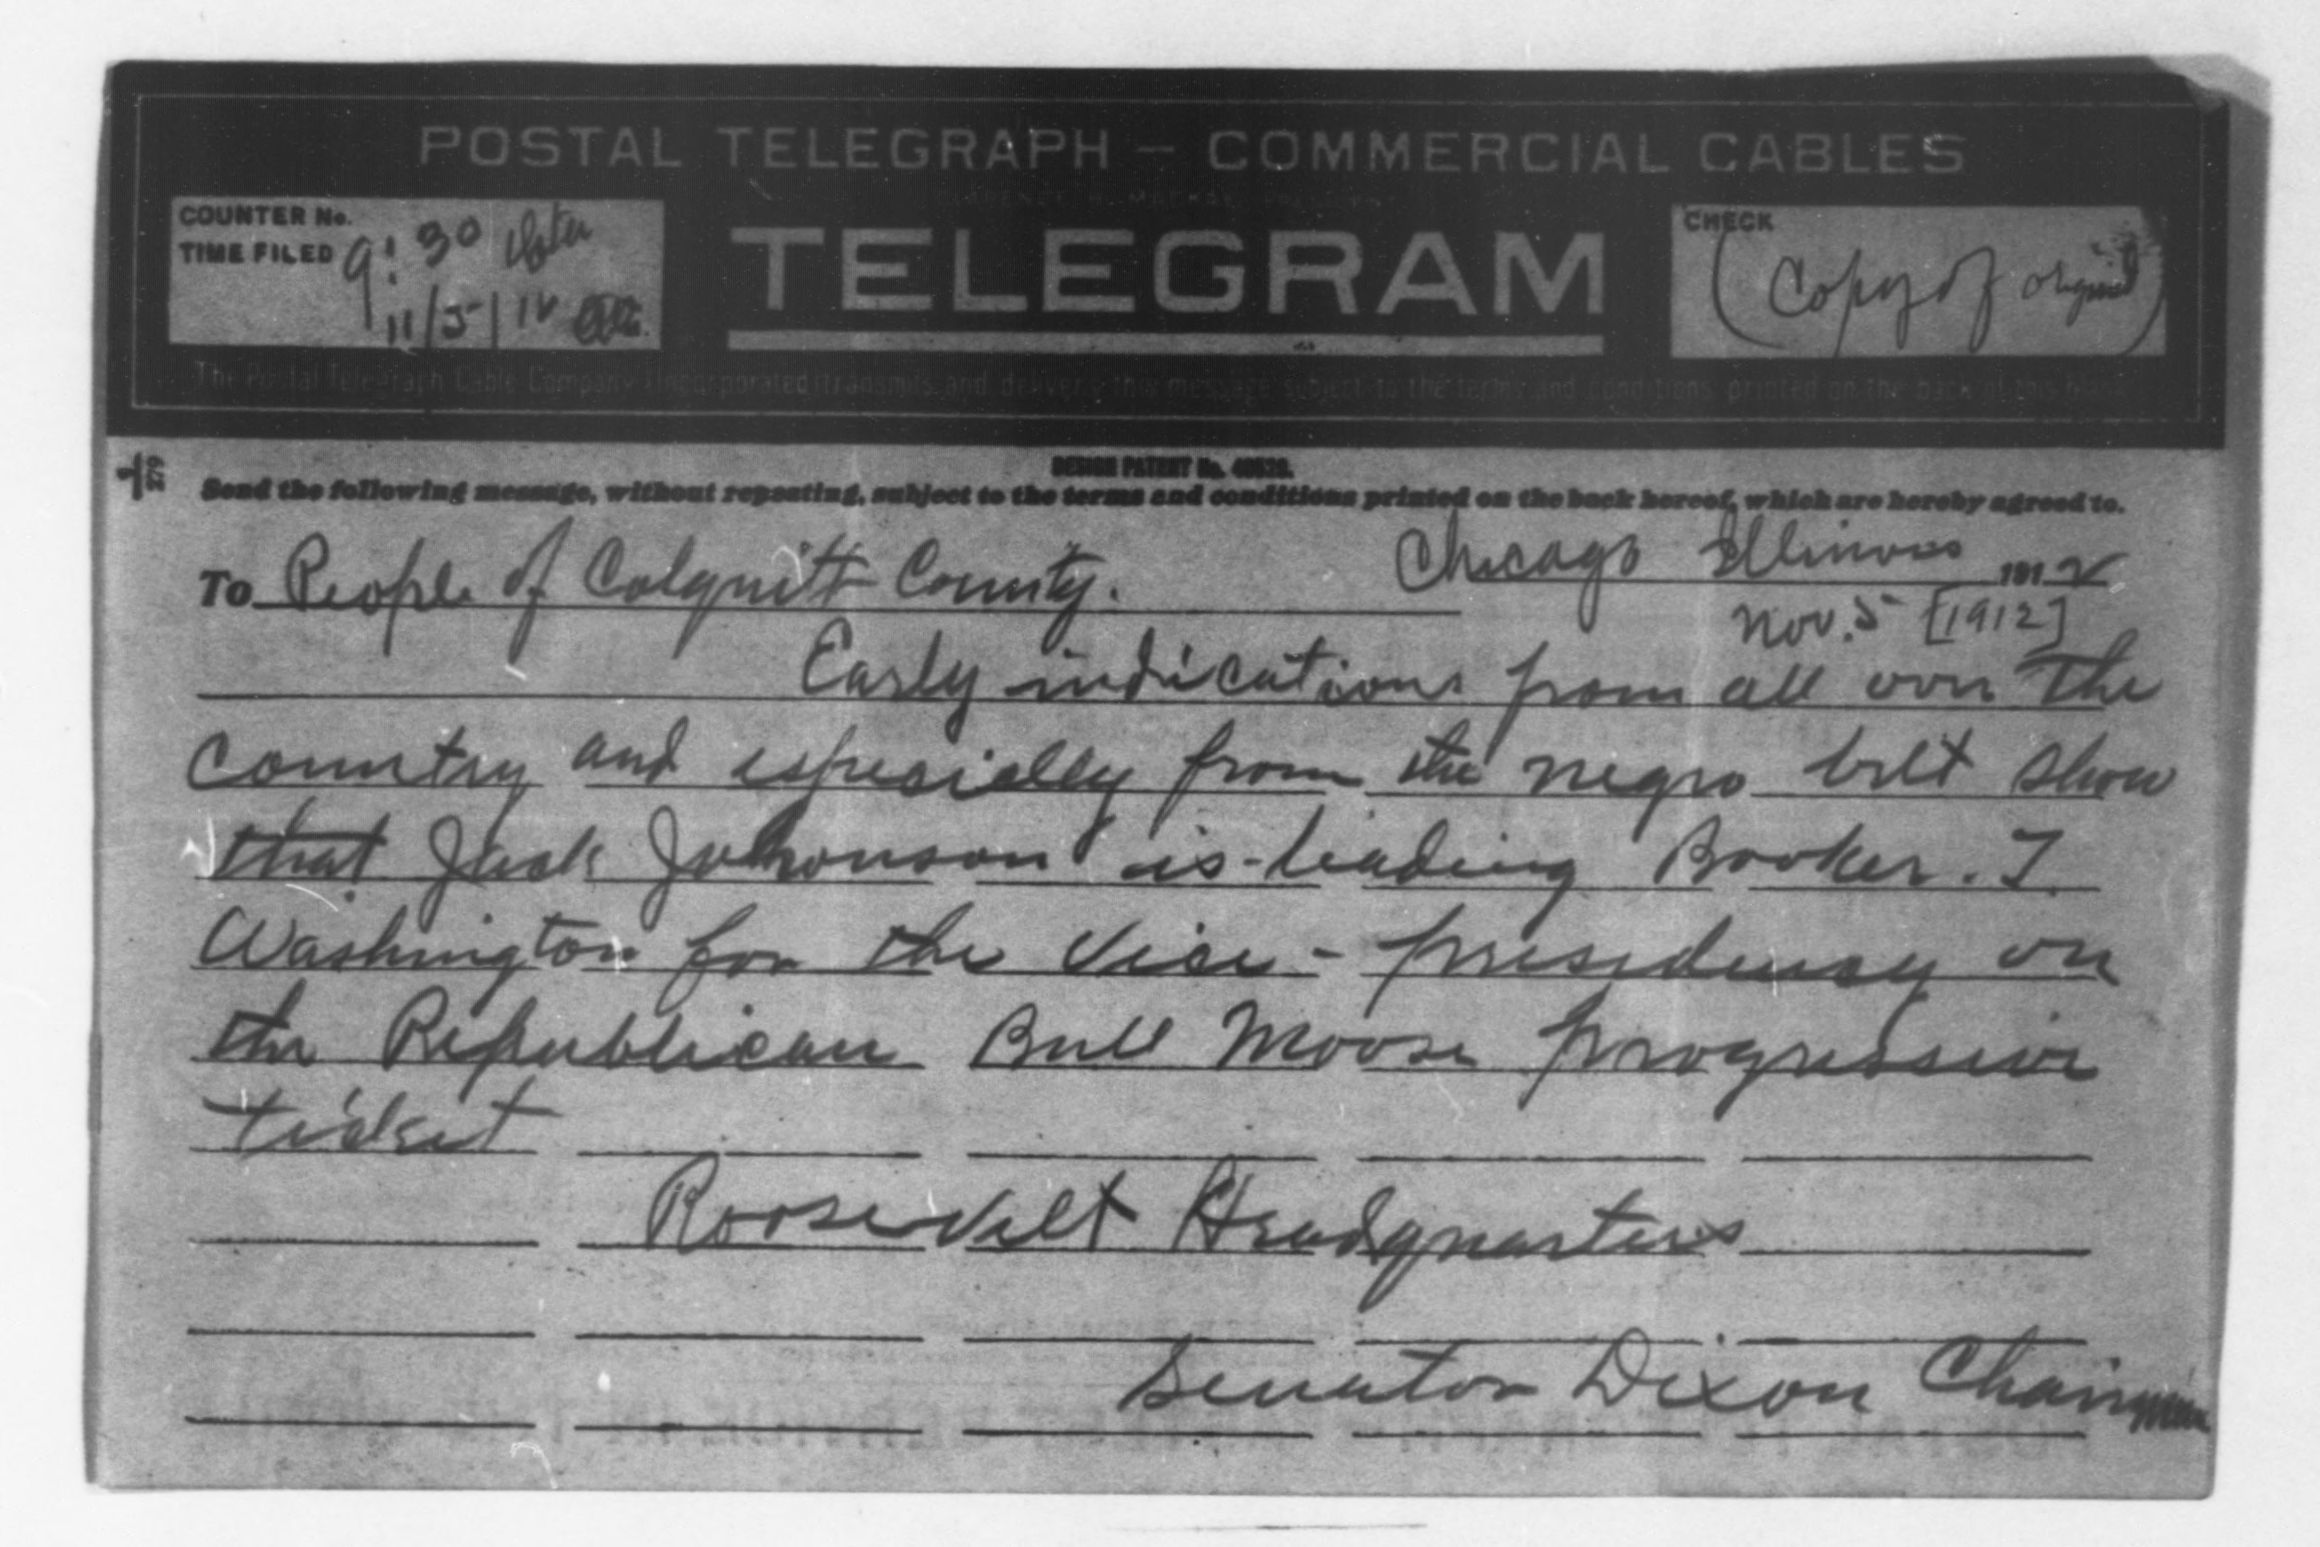 POSTAL TELEGRAPH – COMMERCIAL CABLES
CLARENCE H. MACKAY, PRESIDENT
COUNTER No.
TIME FILED 9:30
11/5/12
TELEGRAM
CHECK
(Copy of original)
The Postal Telegraph-Cable Company (Incorporated) transmits and delivers this message subject to the terms and conditions printed on the back of this blank.
DESIGN PATENT No. 40529.
279
Send the following message, without repeating, subject to the terms and conditions printed on the back hereof, which are hereby agreed to.
To People of Colquitt County. Chicago Illinois 1912
Nov. 5 [1912]
Early indications from all over the
country and espesially from the negro belt show
that Jack Johonson is leading Booker. T.
Washington for the Vice-presidency on
the Republican Bull Moose progressive
ticket
Roosevelt Headquarters
Senator Dixon Chairman